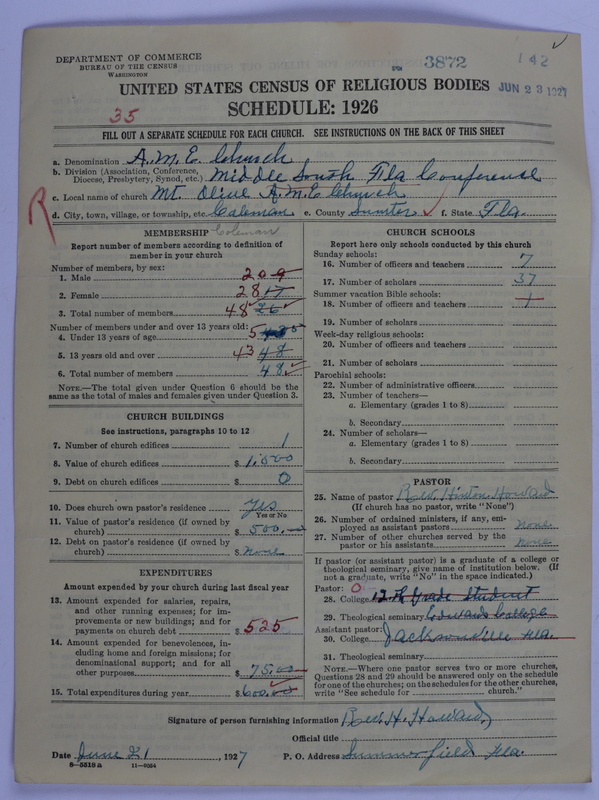 DEPARTMENT OF COMMERCE
BUREAU OF THE CENSUS
WASHINGTON
3872
142
JUN 23 1927
UNITED STATES CENSUS OF RELIGIOUS BODIES
35
SCHEDULE: 1926
FILL OUT A SEPARATE SCHEDULE FOR EACH CHURCH. SEE INSTRUCTIONS ON THE BACK OF THIS SHEET
a. Denomination A.M.E. Church
b. Division (Association, Conference, Diocese, Presbytery, Synod, etc.) Middle South Fla Conference
R
c. Local name of church Mt. Olive A.M.E. Church
d. City, town, village, or township, etc. Coleman e. County Sumter f. State Fla.
MEMBERSHIP Coleman
Report number of members according to definition of member in your church
Number of members, by sex:
1. Male 20
2. Female 28
3. Total number of members 48
Number of members under and over 13 years old:
4. Under 13 years of age 5
5. 13 years old and over 43 48
6. Total number of members 48
NOTE.—The total given under Question 6 should be the same as the total of males and females given under Question 3.
CHURCH BUILDINGS
See instructions, paragraphs 10 to 12
7. Number of church edifices 1
8. Value of church edifices $ 1,500
9. Debt on church edifices $ 0
10. Does church own pastor's residence Yes
Yes or No
11. Value of pastor's residence (if owned by church) $ 500,
12. Debt on pastor's residence (if owned by church) $ none
EXPENDITURES
Amount expended by your church during last fiscal year
13. Amount expended for salaries, repairs, and other running expenses; for improvements or new buildings; and for payments on church debt $ 525
14. Amount expended for benevolences, including home and foreign missions; for denominational support; and for all other purposes $ 75.00
15. Total expenditures during year $ 600.00
CHURCH SCHOOLS
Report here only schools conducted by this church
Sunday schools:
16. Number of officers and teachers 7
17. Number of scholars 37
Summer vacation Bible schools:
18. Number of officers and teachers 1
19. Number of scholars
Week-day religious schools:
20. Number of officers and teachers
21. Number of scholars
Parochial schools:
22. Number of administrative officers
23. Number of teachers—
a. Elementary (grades 1 to 8)
b. Secondary
24. Number of scholars—
a. Elementary (grades 1 to 8)
b. Secondary
PASTOR
25. Name of pastor Rev. Hinton Howard
(If church has no pastor, write "None")
26. Number of ordained ministers, if any, employed as assistant pastors none
27. Number of other churches served by the pastor or his assistants none
If pastor (or assistant pastor) is a graduate of a college or theological seminary, give name of institution below. (If not a graduate, write "No" in the space indicated.)
Pastor: 0
28. College 12th Grade Student
29. Theological seminary Edwards College
Assistant pastor:
30. College Jacksonville Fla.
31. Theological seminary
NOTE.—Where one pastor serves two or more churches, Questions 28 and 29 should be answered only on the schedule for one of the churches; on the schedules for the other churches, write "See schedule for church."
Signature of person furnishing information Rev. H. Howard,
Official title
Date June 21, 1927 P. O. Address Summerfield Fla.
8—5518 a 11—6034